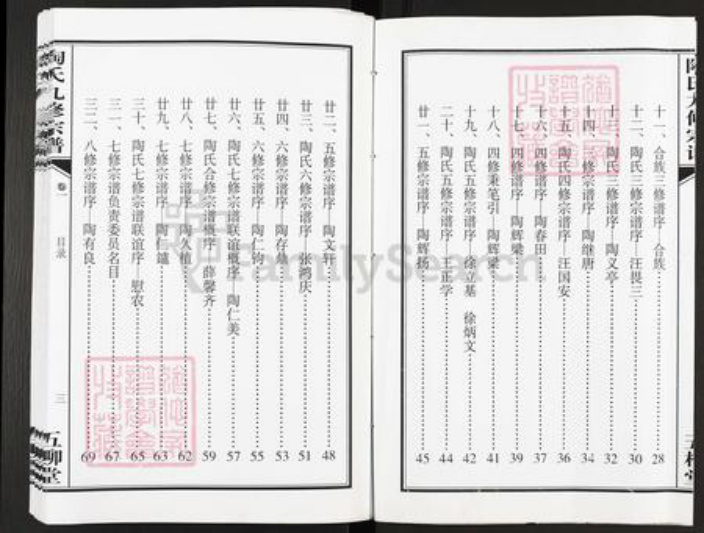 十一、合族三修谱序—合族 28
十二、陶氏三修宗谱序—汪畏三 30
十三、陶氏三修谱序—陶文亭 32
十四、修宗谱序—陶继唐 34
十五、陶氏四修宗谱序—汪国安 36
十六、四修谱序—陶春田 37
十七、四修谱序—陶辉梁 39
十八、四修秉笔引—陶辉梁 41
十九、陶氏五修宗谱序—徐立基 徐炳文 42
二十、陶氏五修宗谱序—正学 44
廿一、五修宗谱序—陶辉扬 45
廿二、五修宗谱序—陶文轩 48
廿三、陶氏六修宗谱序—张鸿庆 51
廿四、六修宗谱序—陶存鼎 53
廿五、六修宗谱序—陶仁钧 55
廿六、陶氏七修宗谱联谊概序—陶仁美 57
廿七、陶氏合修宗谱概序—薛馨齐 59
廿八、七修宗谱序—陶久植 62
廿九、七修宗谱序—陶仁鑪 63
三十、陶氏七修宗谱联谊序—慰农 65
三一、七修宗谱负责委员名目 67
三二、八修宗谱序—陶有良 69
陶氏九修宗谱
卷一
目录
三
五柳堂
FamilySearch